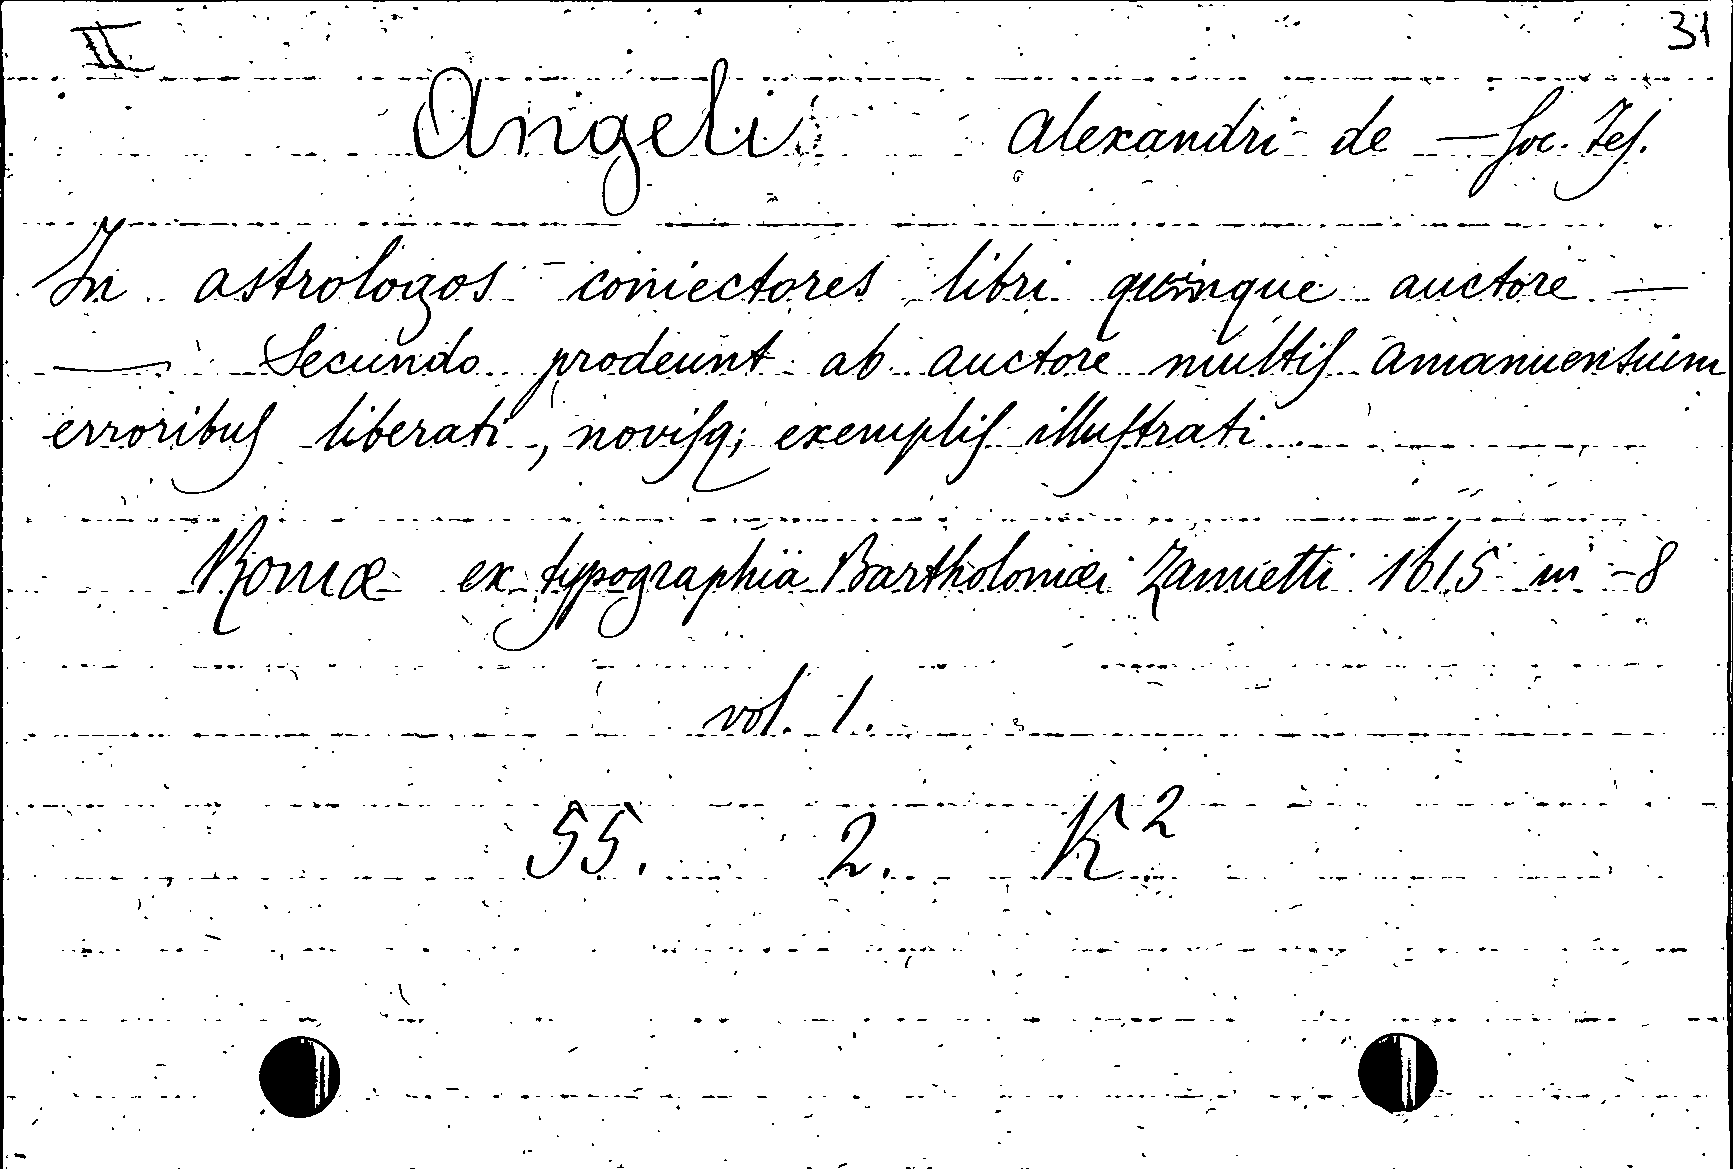 II 31
Angelis Alexandri de — Soc. Jeſ.
In astrologos coniectores libri quinque auctore —
— Secundo prodeunt ab auctore multiſ amanuensium
erroribuſ liberati, noviſq; exempliſ illuſtrati
Romæ ex typographia Bartholomæi Zannetti 1615 in -8
vol. 1.
55. 2. K²